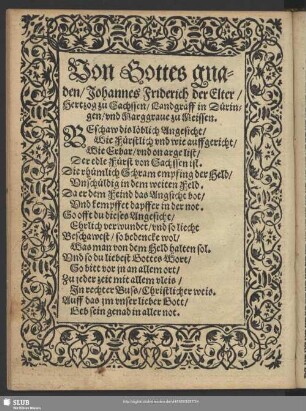 Von Gottes gna-
den / Johannes Friderich der Elter /
Hertzog zu Sachssen / Landgraff in Dürin-
gen / vnd Marggraue zu Meissen.
BEschaw dis löblich Angesicht /
Wie Fürstlich vnd wie auffgericht /
Wie Erbar / vnd on arge list /
Der edle Fürst von Sachssen ist.
Die rhümlich Schram empfing der Held /
Vnschüldig in dem weiten Feld.
Da er dem Feind das Angsicht bot /
Vnd kempffet dapffer in der not.
So offt du dieses Angesicht /
Ehrlich verwundet / vnd so liecht
Beschawest / so bedencke wol /
Was man von dem Held halten sol.
Vnd so du liebest Gottes Wort /
So bitt vor jn an allem ort /
Zu jeder zeit mit allem vleis /
In rechter Buss / Christlicher weis.
Auff das jm vnser lieber Gott /
Geb sein genad in aller not.
SLUB
Wir führen Wissen.